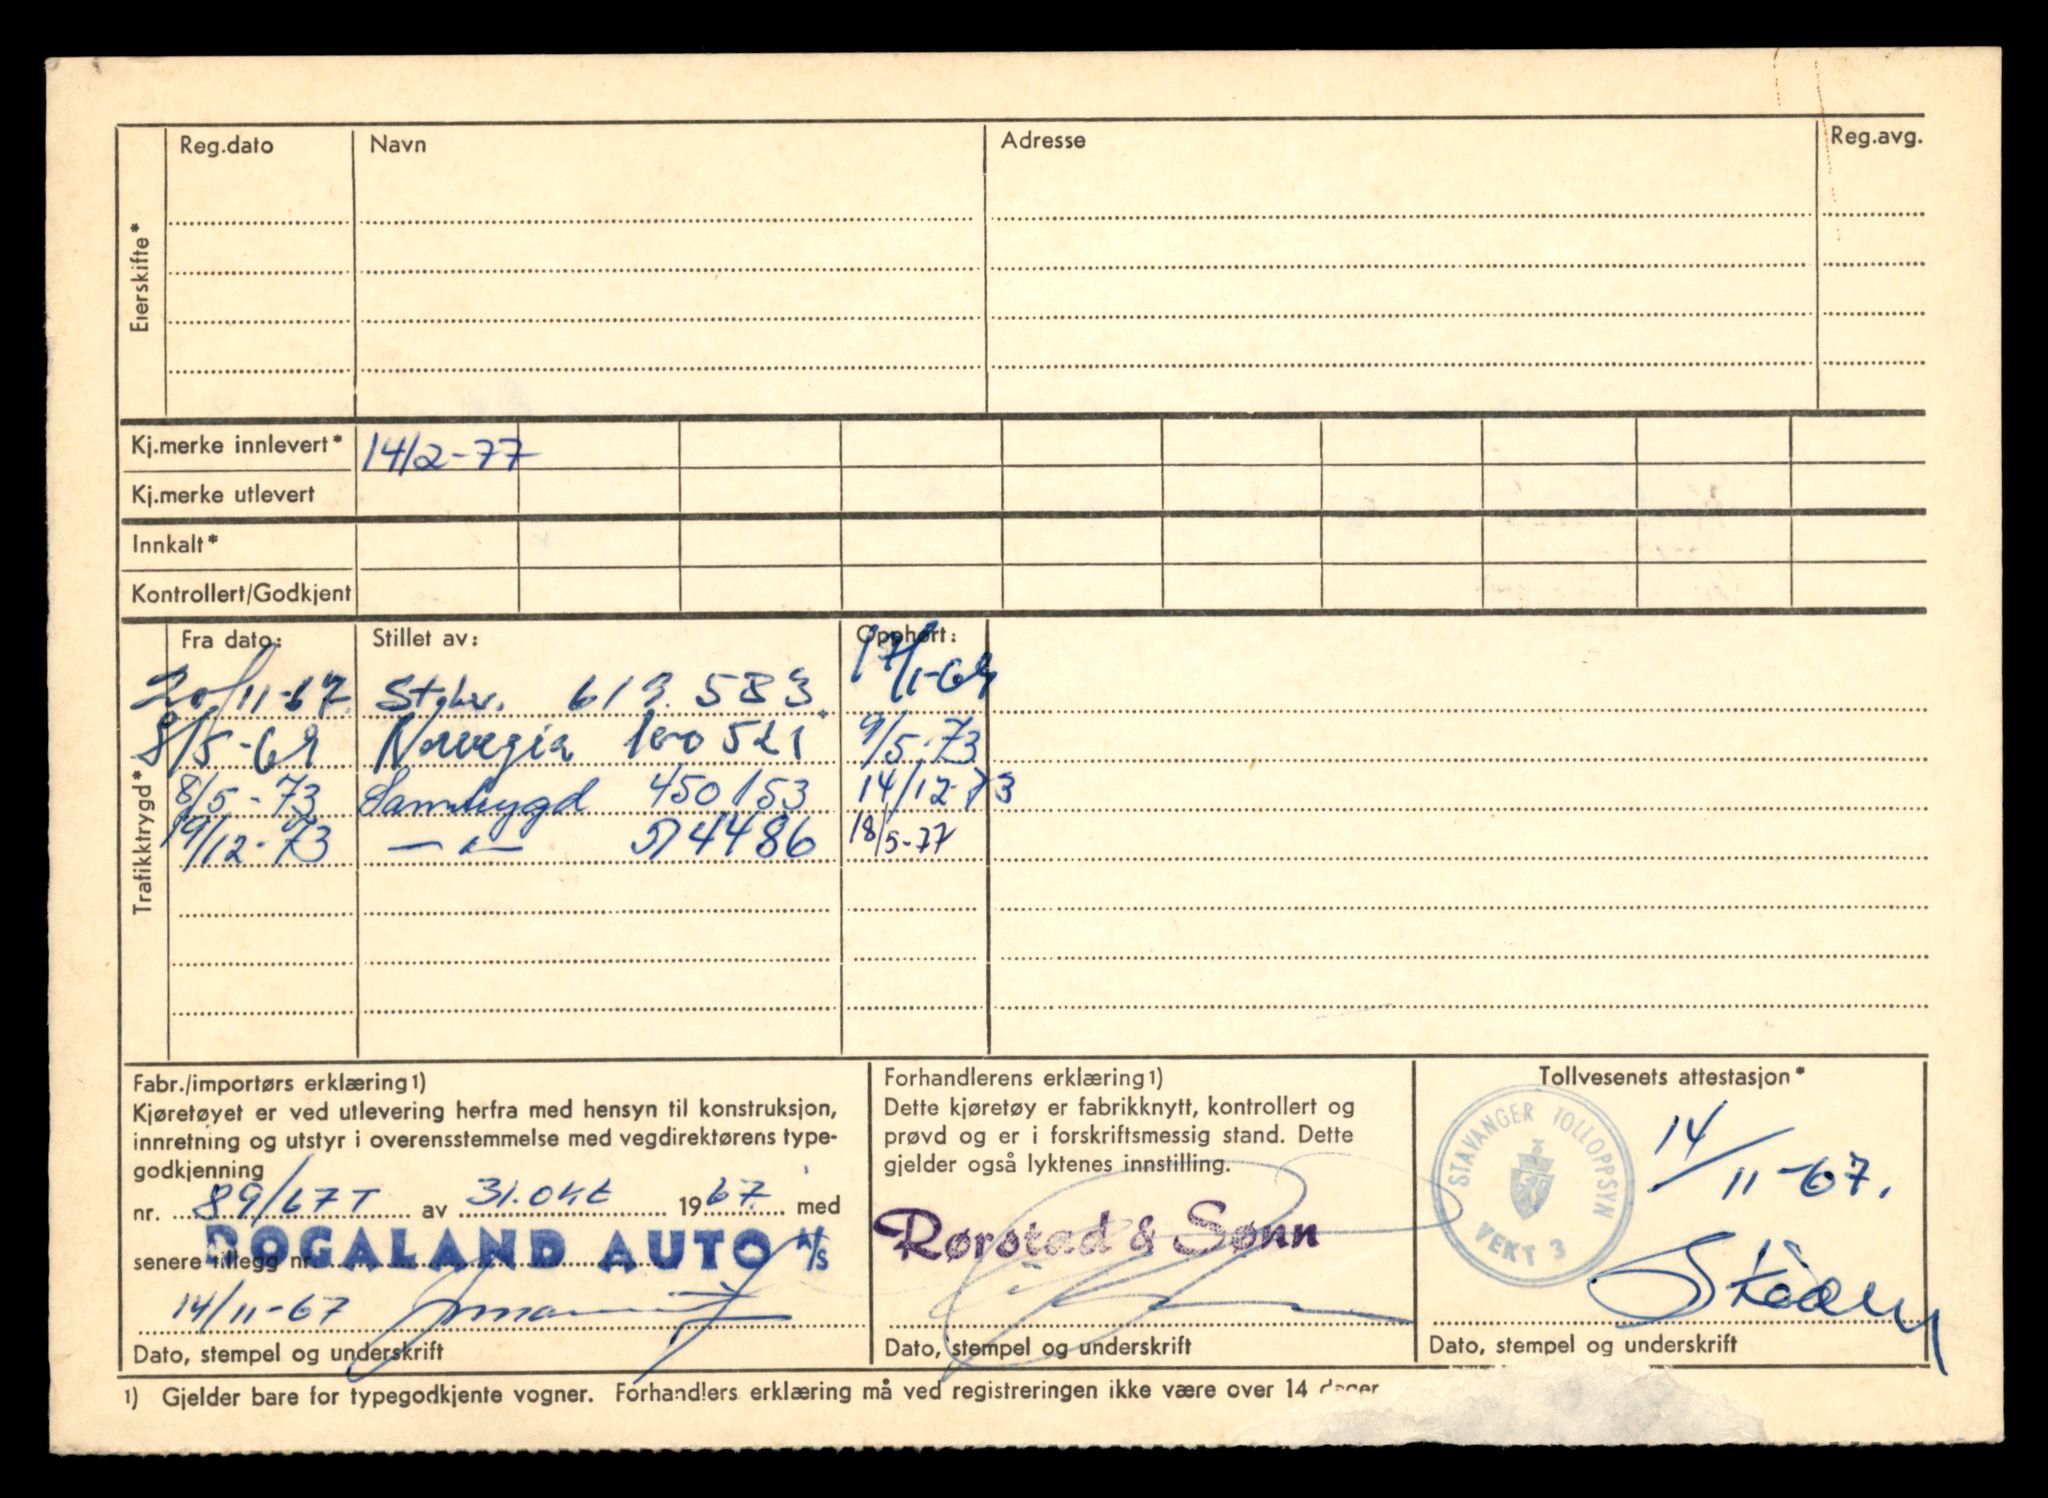 Reg.dato Navn Adresse Reg.avg.
Eierskifte*
Kj.merke innlevert* 14/2-77
Kj.merke utlevert
Innkalt*
Kontrollert/Godkjent
Trafikktrygd*
Fra dato: Stillet av: Opphørt:
20/11-67 Stgbr. 619.583. 17/1-69
8/5-69 Norvegia 100521 9/5-73
8/5-73 Samtrygd 450153 14/12-73
19/12-73 — " — 574486 18/5-77
Fabr./importørs erklæring1)
Kjøretøyet er ved utlevering herfra med hensyn til konstruksjon,
innretning og utstyr i overensstemmelse med vegdirektørens type-
godkjenning
nr. 89/67T av 31.okt 1967. med
senere tillegg nr.
ROGALAND AUTO A/S
14/11-67
Dato, stempel og underskrift
Forhandlerens erklæring1)
Dette kjøretøy er fabrikknytt, kontrollert og
prøvd og er i forskriftsmessig stand. Dette
gjelder også lyktenes innstilling.
Rørstad & Sønn
Dato, stempel og underskrift
Tollvesenets attestasjon*
STAVANGER TOLLOPPSYN
VEKT 3
14/11-67.
Dato, stempel og underskrift
1) Gjelder bare for typegodkjente vogner. Forhandlers erklæring må ved registreringen ikke være over 14 dager